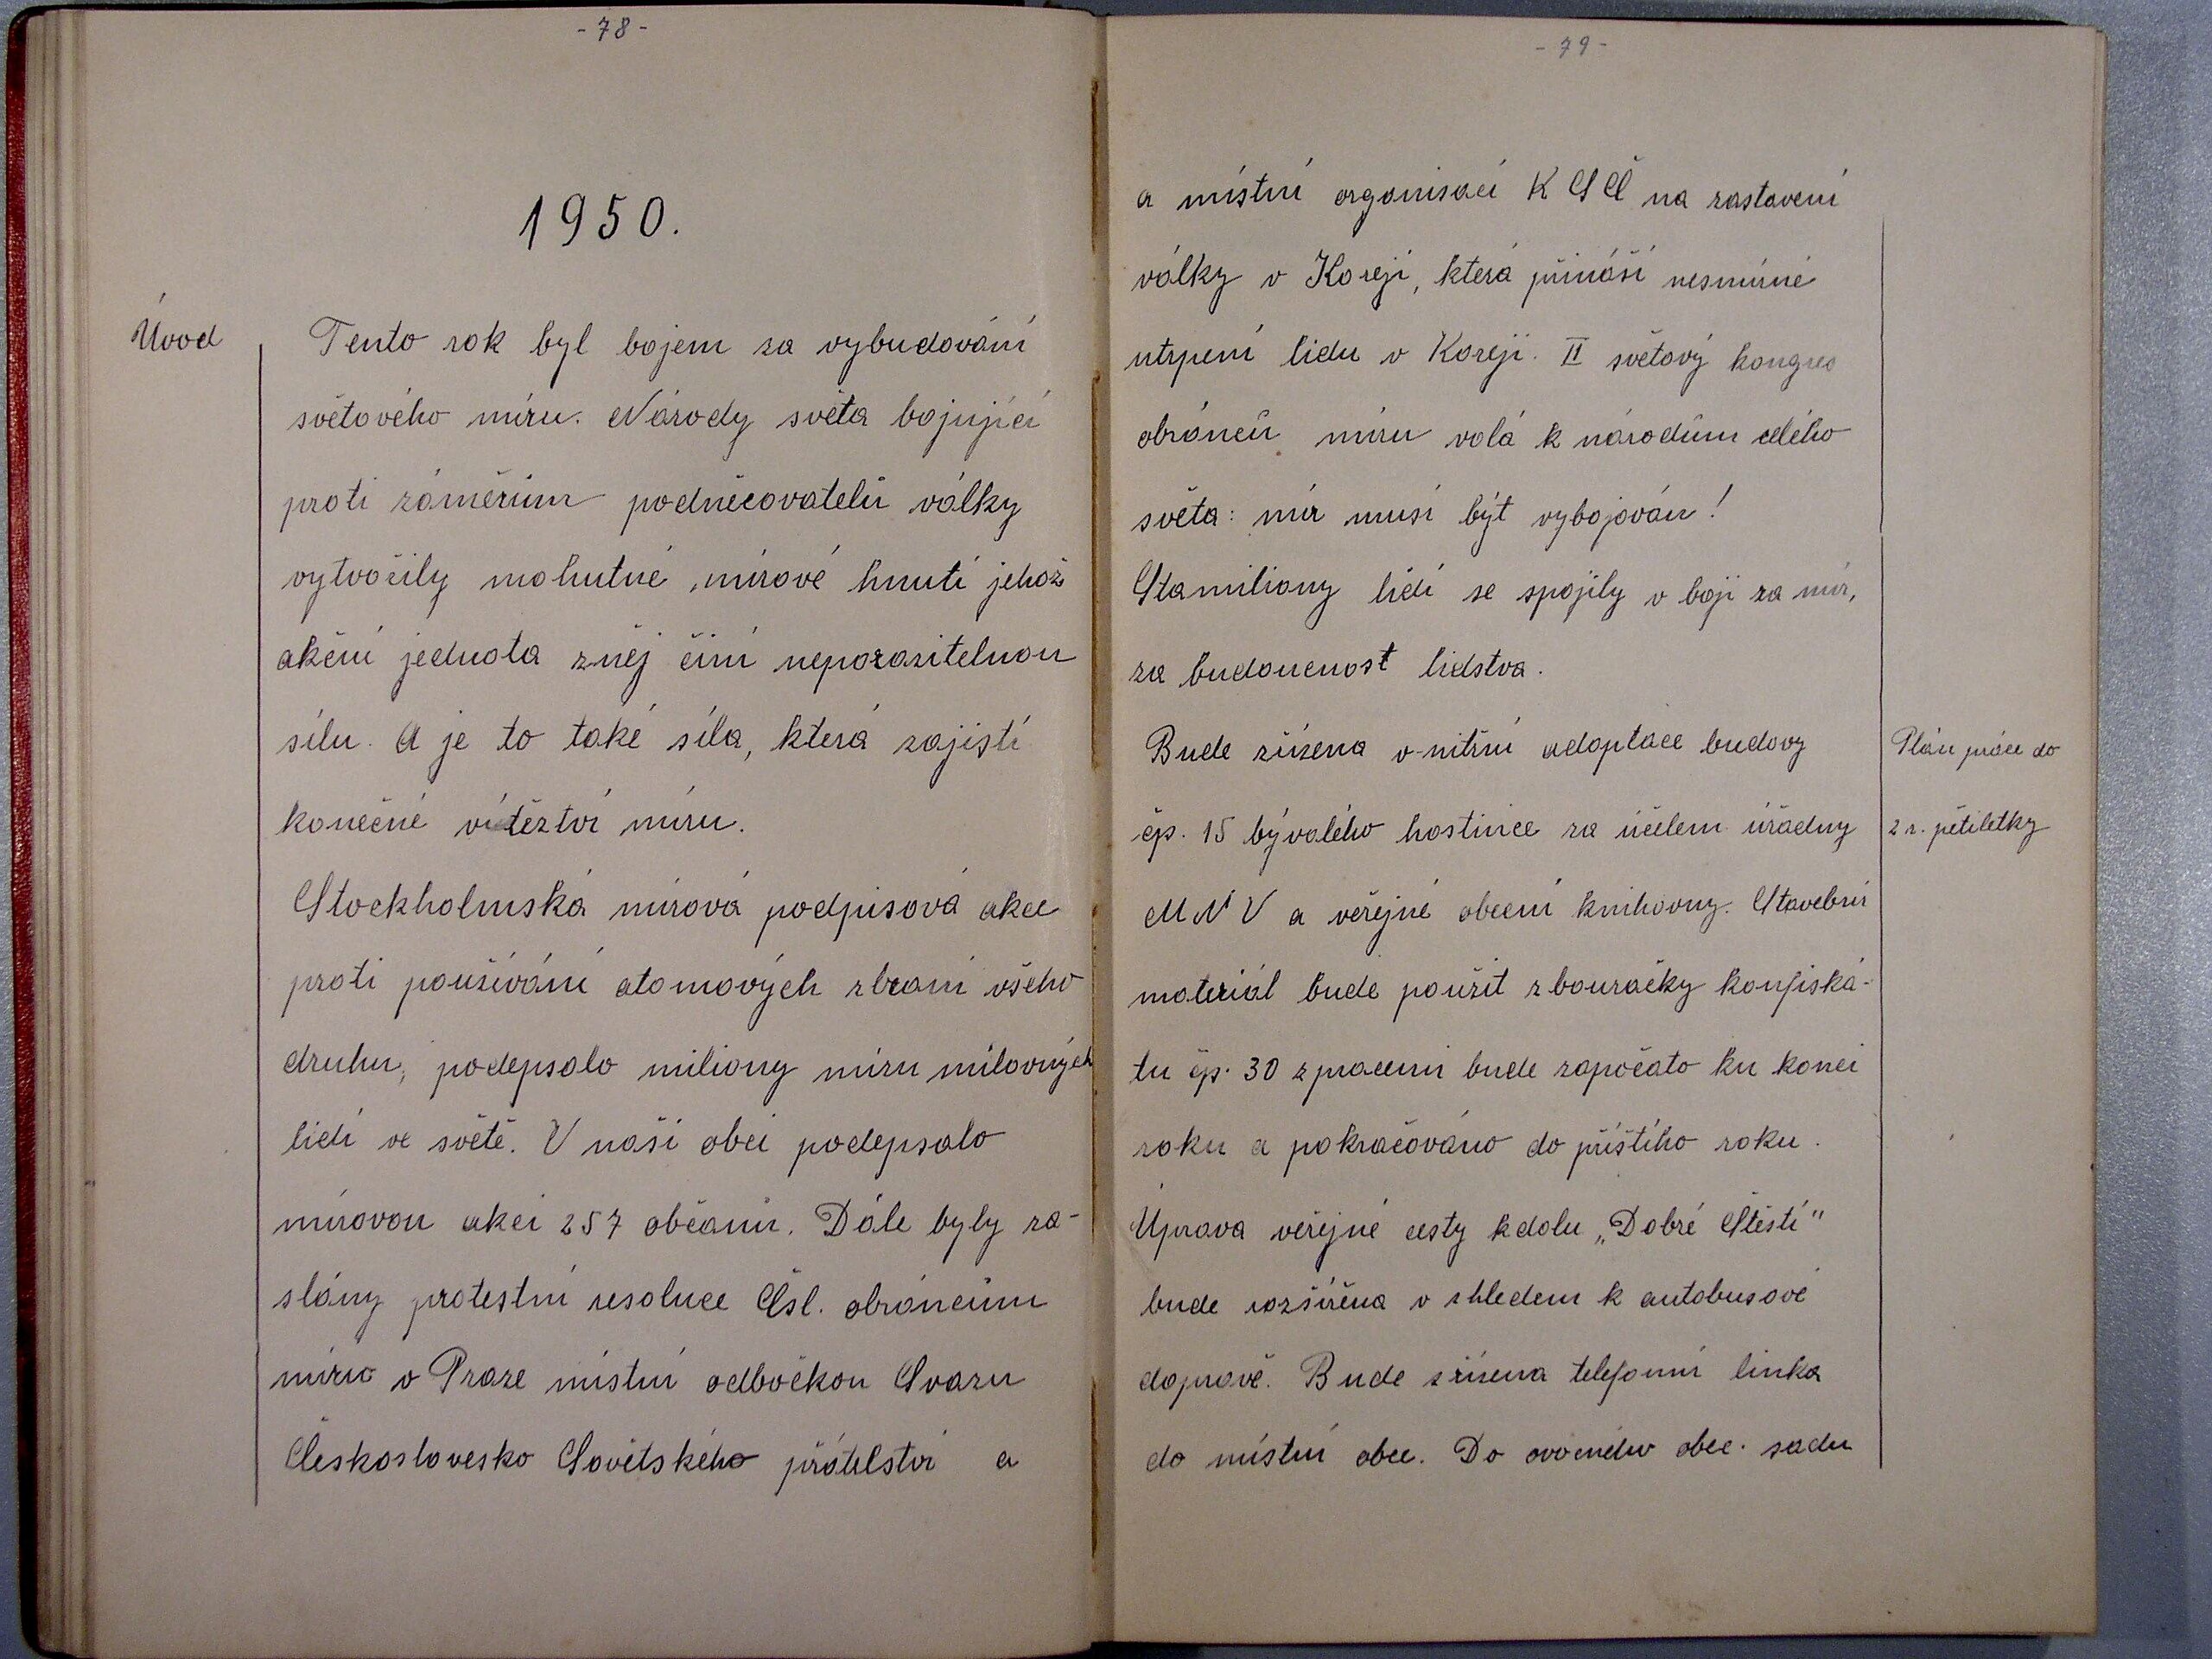 - 78 -
1950.
Úvod
Tento rok byl bojem za vybudování
světového míru. Národy světa bojující
proti záměrům podněcovatelů války
vytvořily mohutné mírové hnutí jehož
akční jednota zněj činí neporazitelnou
sílu. A je to také síla, která zajistí
konečné vítěztví míru.
Stockholmská mírová podpisová akce
proti používání atomových zbraní všeho
druhu, podepsalo miliony míru milovných
lidí ve světě. V naší obci podepsalo
mírovou akci 257 občanů. Dále byly za-
slány protestní resoluce Čsl. obráncům
míru v Praze místní odbočkou Svazu
Českoslovesko Sovětského přátelství a
- 79 -
a místní organisací KSČ na zastavení
války v Koreji, která přináší nesmírné
utrpení lidu v Koreji. II světový kongres
obránců míru volá k národům celého
světa: mír musí být vybojován!
Stamiliony lidí se spojily v boji za mír,
za budoucnost lidstva.
Plán práce do
2 r. pětiletky
Bude zřízena v-nitřní adoptace budovy
čp. 15 bývalého hostince za účelem úřadny
MNV a veřejné obecní knihovny. Stavební
materiál bude použit zbouračky konfiská-
tu čp. 30 zpracemi bude započato ku konci
roku a pokračováno do příštího roku.
Úprava veřejné cesty kdolu „Dobré Štěstí"
bude rozšířěna v zhledem k autobusové
dopravě. Bude zřízena telefonní linka
do místní obce. Do ovocného obec. sadu